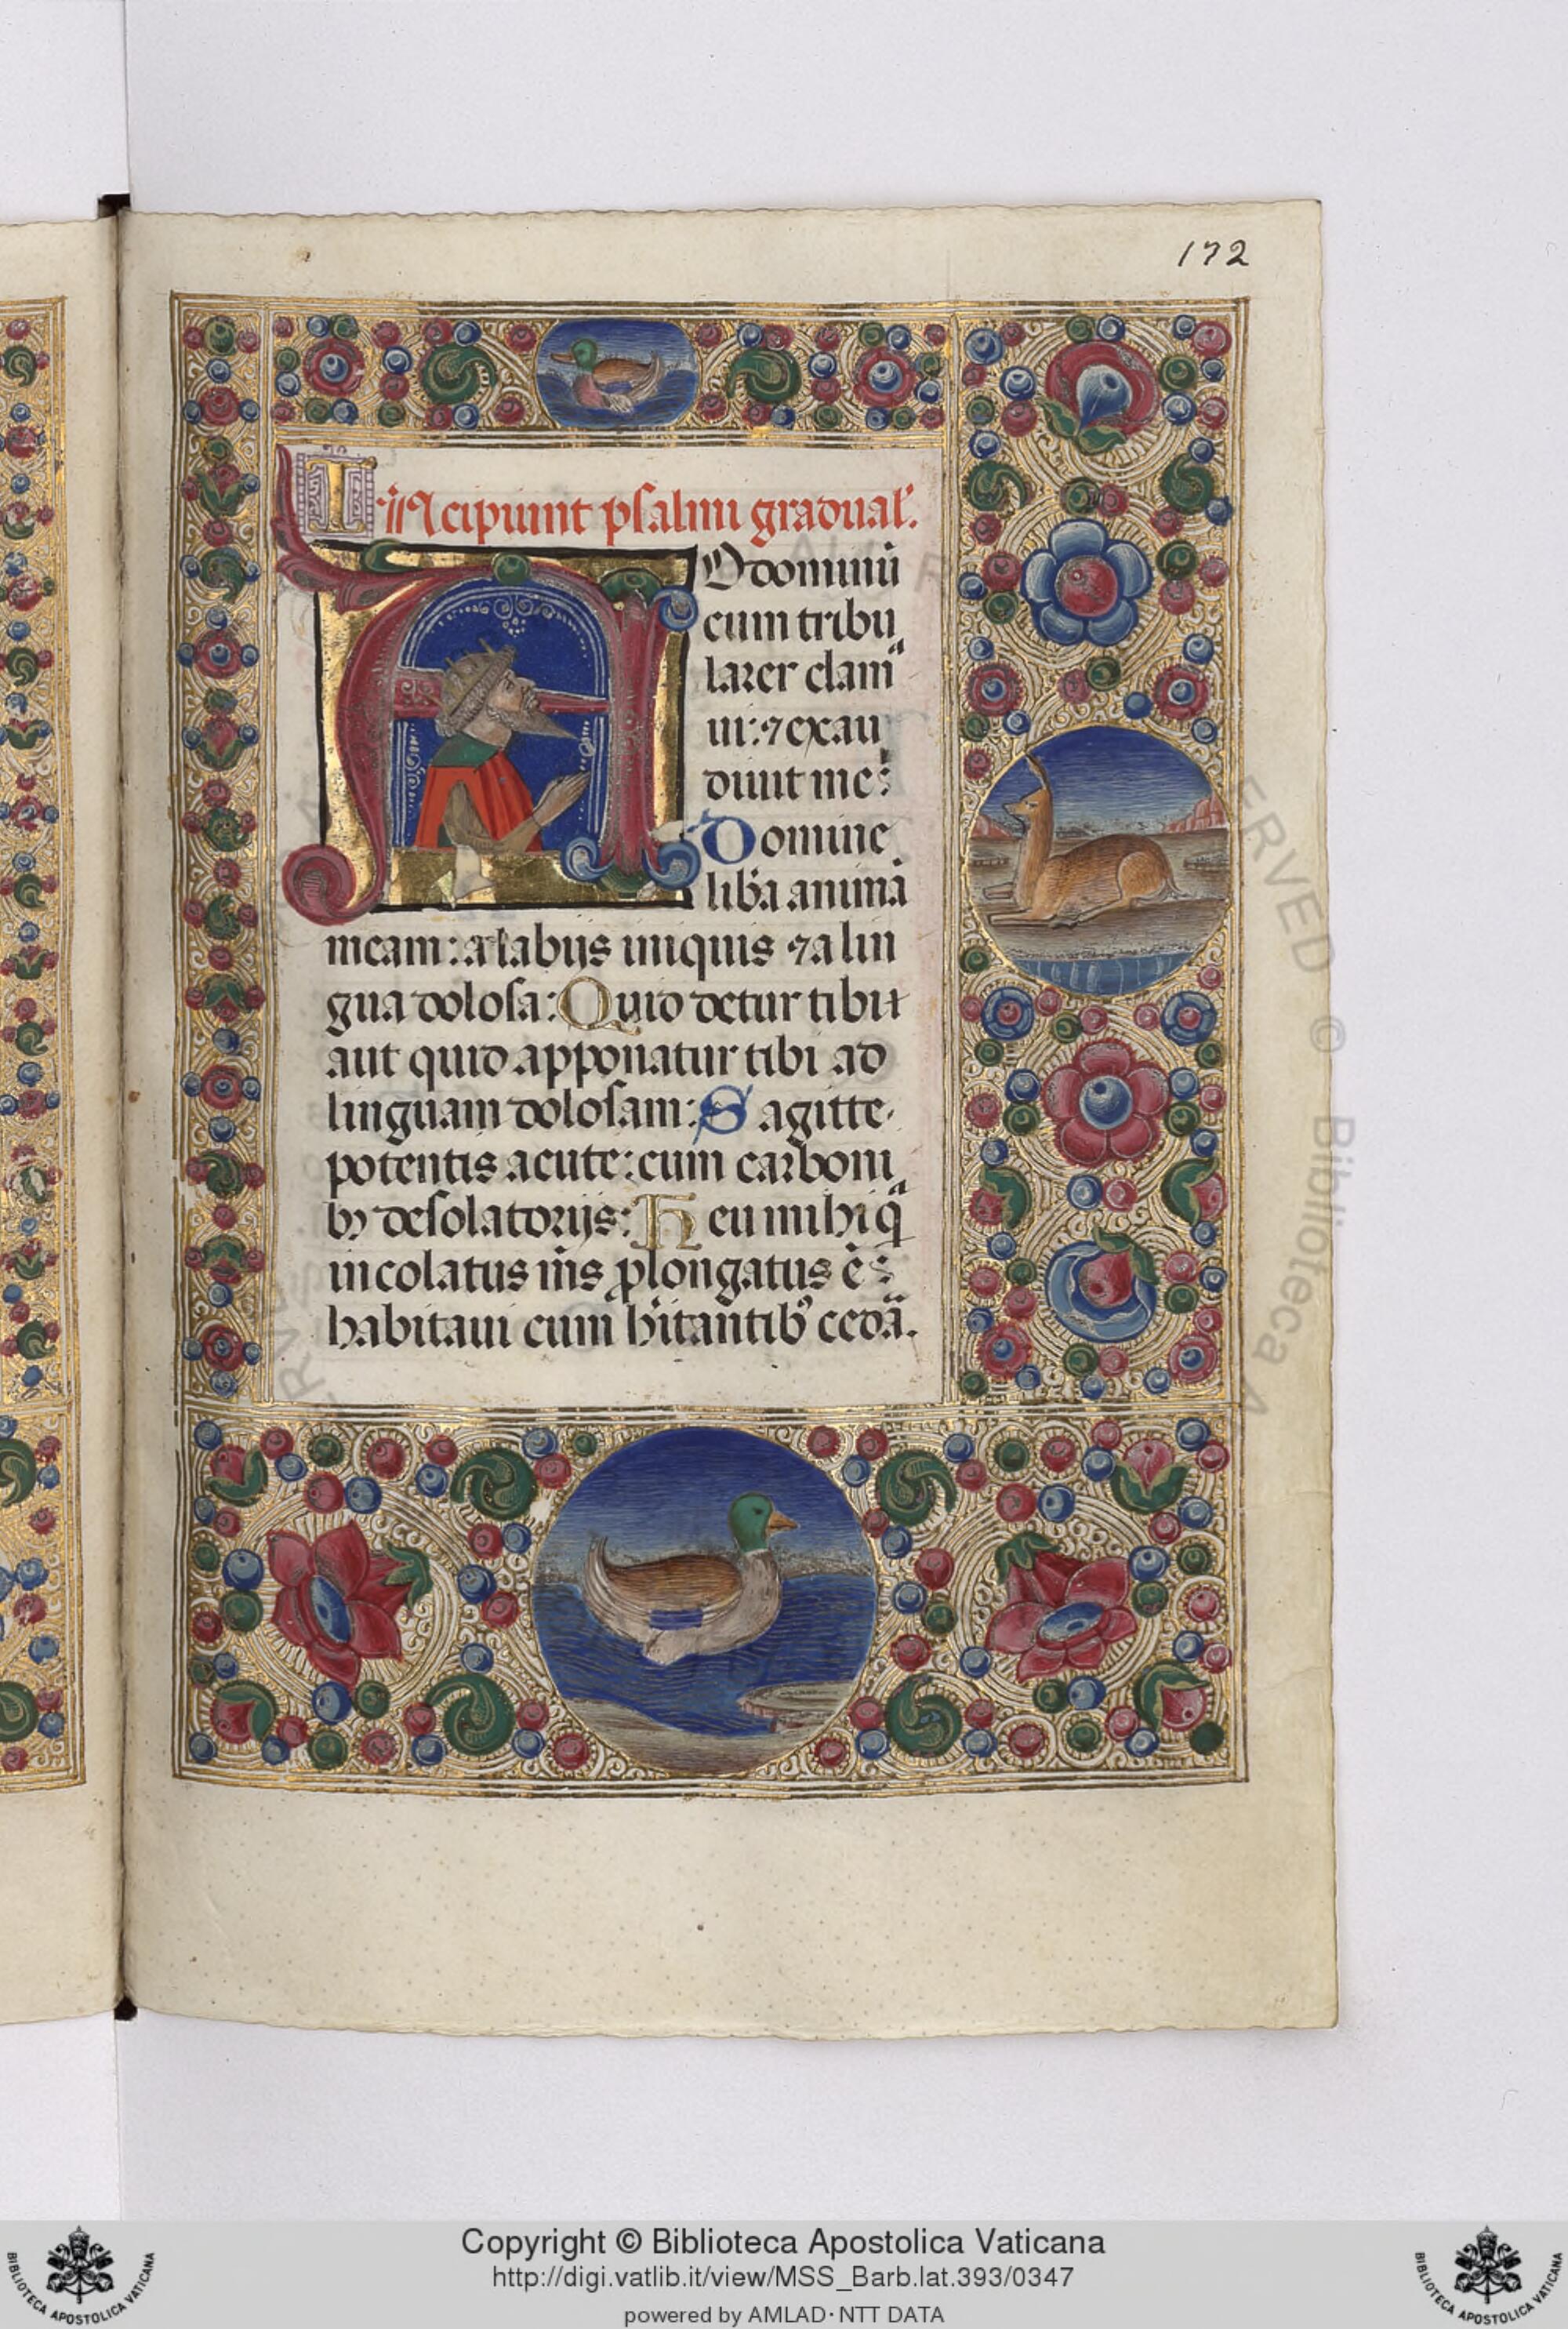 172
Incipiunt psalmi gradual'.
A Ddominū
cum tribu
larer clamᵃ
ui: ⁊ exau
diuit me:
Domine
lib̄a animā
meam: a labijs iniquis ⁊ a lin
gua dolosa: Quid detur tibi
aut quid apponatur tibi ad
linguam dolosam: Sagitte
potentis acute: cum carboni
bꝫ desolatorijs: Heu mihi qᵃ
incolatus m̄s ꝓlongatus ē:
habitaui cum h̄itantibꝰ cedā.
Copyright © Biblioteca Apostolica Vaticana
http://digi.vatlib.it/view/MSS_Barb.lat.393/0347
powered by AMLAD·NTT DATA
BIBLIOTECA APOSTOLICA VATICANA
BIBLIOTECA APOSTOLICA VATICANA